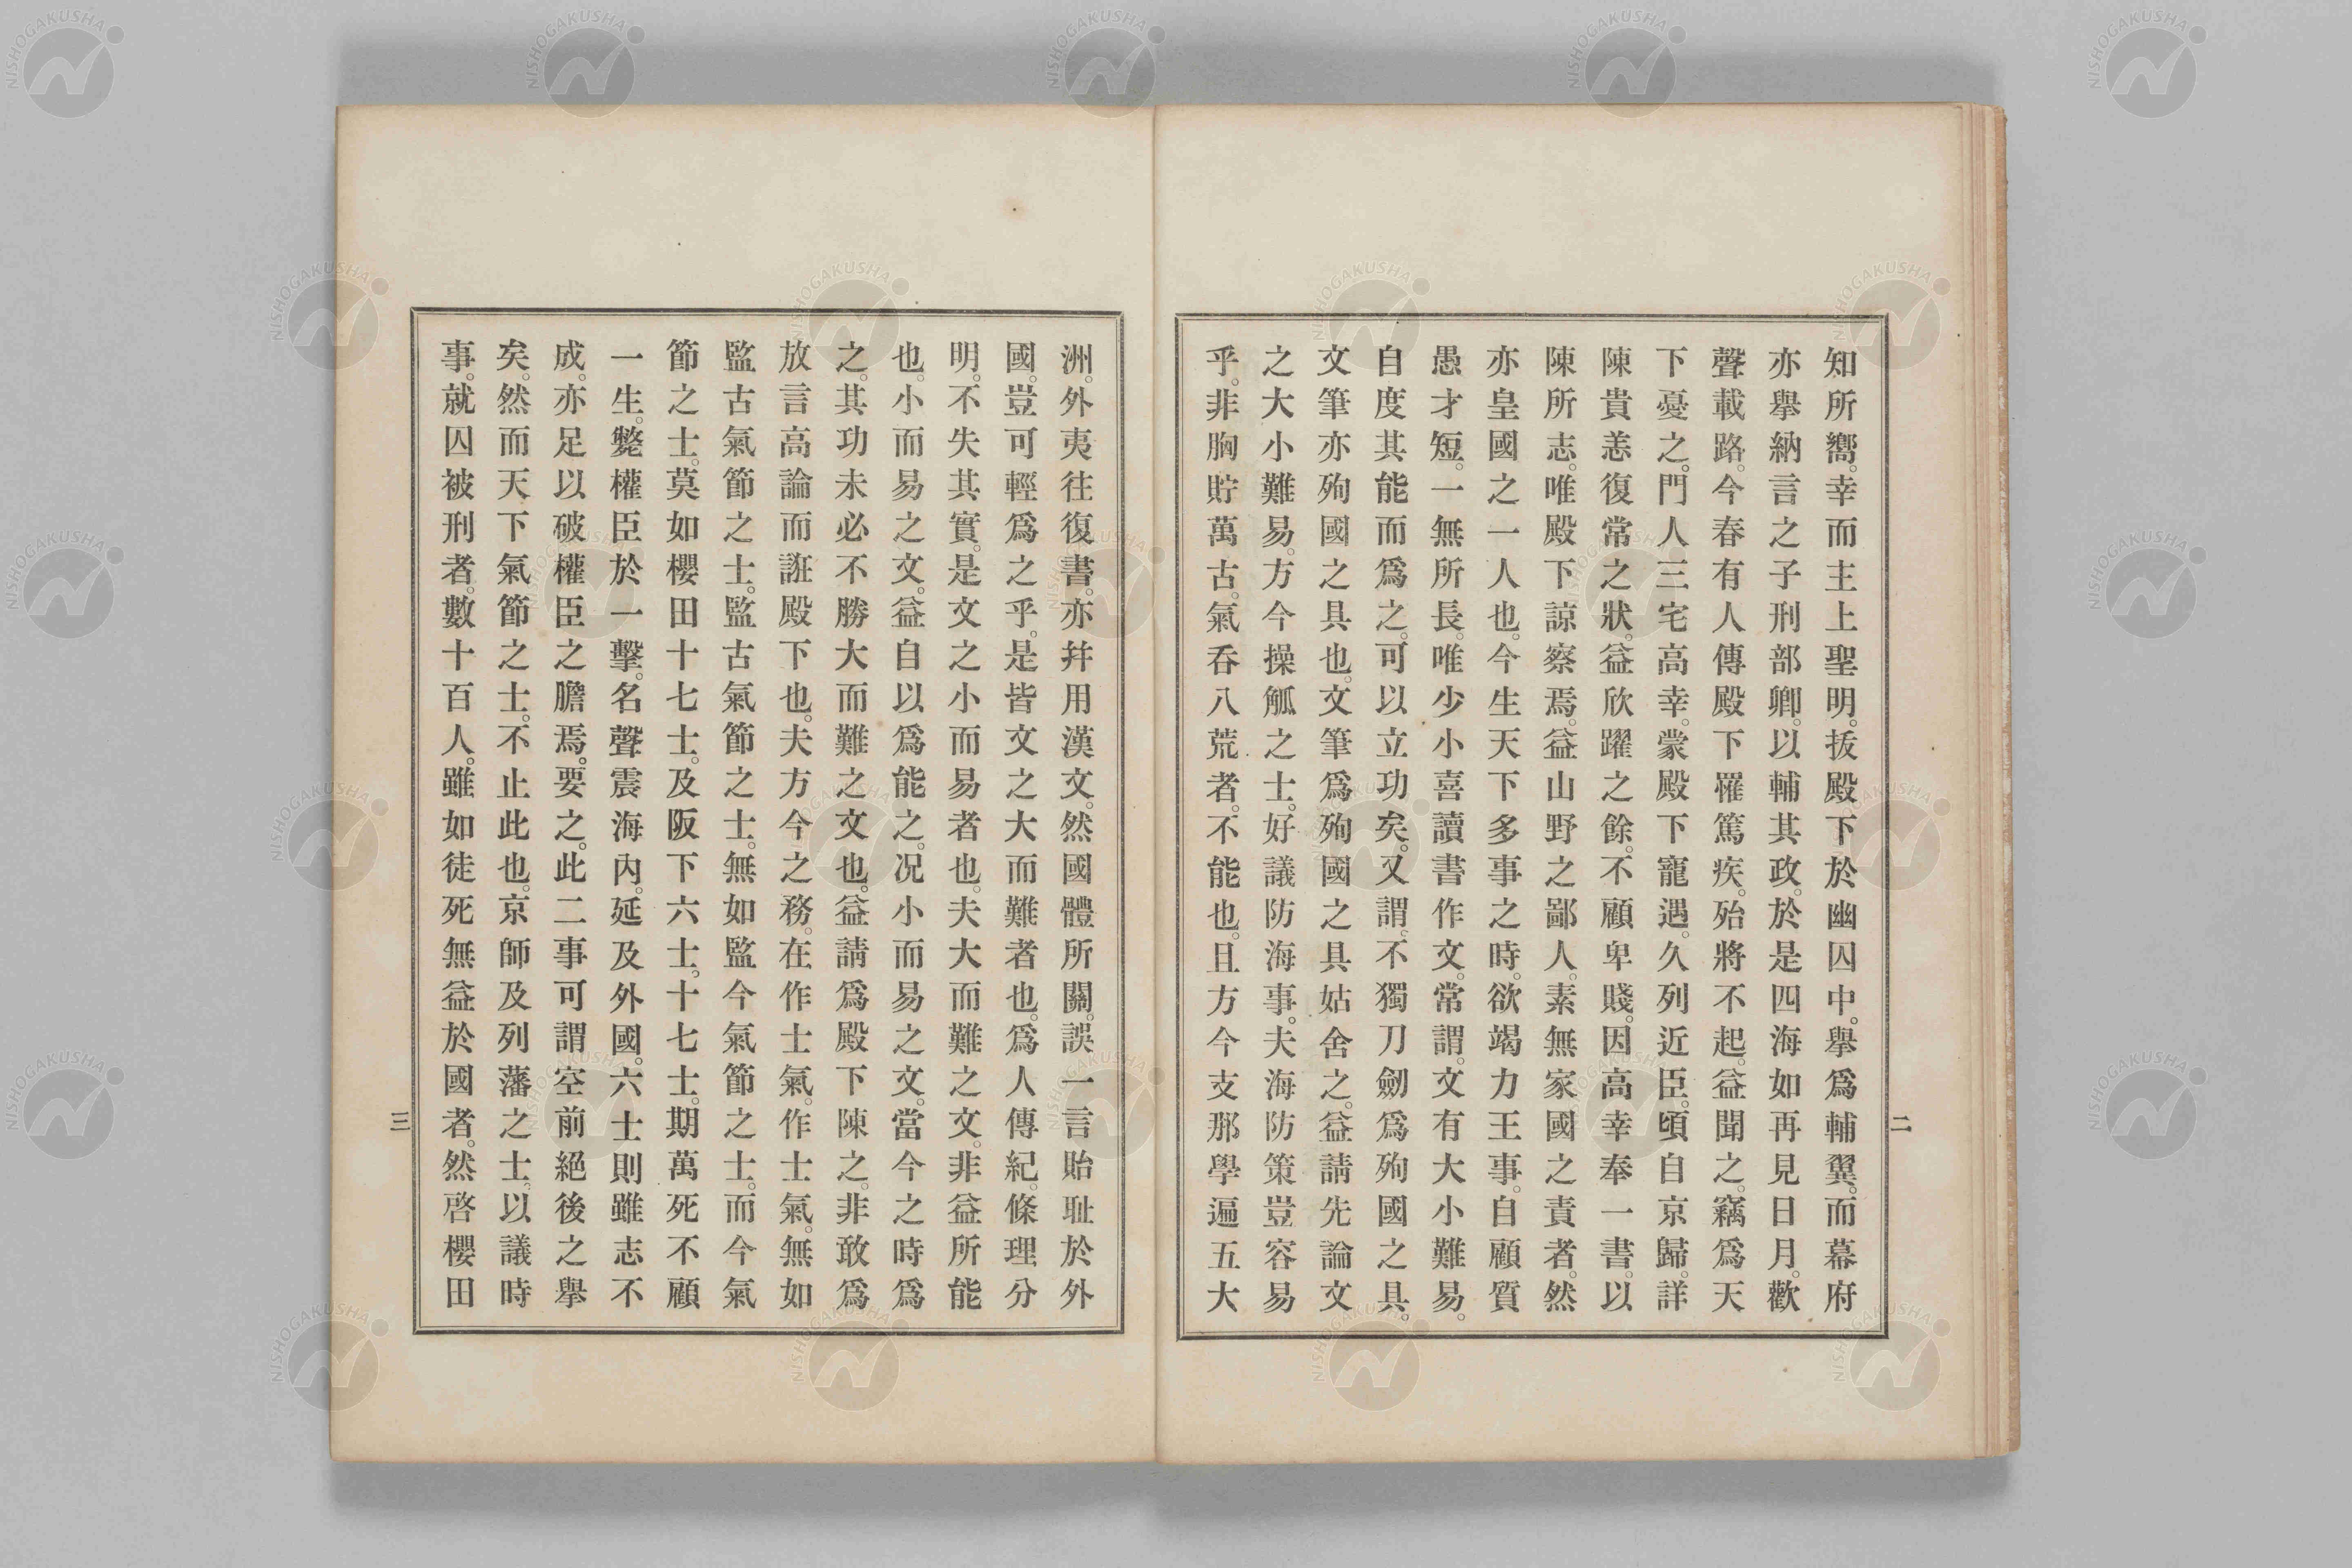 知所嚮。幸而主上聖明。拔殿下於幽囚中。擧爲輔翼。而幕府
亦擧納言之子刑部卿。以輔其政。於是四海如再見日月。歡
聲載路。今春有人傳殿下罹篤疾。殆將不起。益聞之。竊爲天
下憂之。門人三宅高幸。蒙殿下寵遇。久列近臣。頃自京歸。詳
陳貴恙復常之狀。益欣躍之餘。不顧卑賤。因高幸奉一書。以
陳所志。唯殿下諒察焉。益山野之鄙人。素無家國之責者。然
亦皇國之一人也。今生天下多事之時。欲竭力王事。自顧質
愚才短。一無所長。唯少小喜讀書作文。常謂。文有大小難易。
自度其能而爲之。可以立功矣。又謂。不獨刀劒爲殉國之具。
文筆亦殉國之具也。文筆爲殉國之具姑舍之。益請先論文
之大小難易。方今操觚之士。好議防海事。夫海防策豈容易
乎。非胸貯萬古。氣呑八荒者。不能也。且方今支那學遍五大
二
洲。外夷往復書。亦幷用漢文。然國體所關。誤一言貽耻於外
國。豈可輕爲之乎。是皆文之大而難者也。爲人傳紀。條理分
明。不失其實。是文之小而易者也。夫大而難之文。非益所能
也。小而易之文。益自以爲能之。况小而易之文。當今之時爲
之。其功未必不勝大而難之文也。益請爲殿下陳之。非敢爲
放言高論而誑殿下也。夫方今之務。在作士氣。作士氣。無如
監古氣節之士。監古氣節之士。無如監今氣節之士。而今氣
節之士。莫如櫻田十七士。及阪下六士。十七士。期萬死不顧
一生。斃權臣於一擊。名聲震海內。延及外國。六士則雖志不
成。亦足以破權臣之膽焉。要之。此二事可謂空前絕後之擧
矣。然而天下氣節之士。不止此也。京師及列藩之士。以議時
事。就囚被刑者。數十百人。雖如徒死無益於國者。然啓櫻田
三
NISHOGAKUSHA